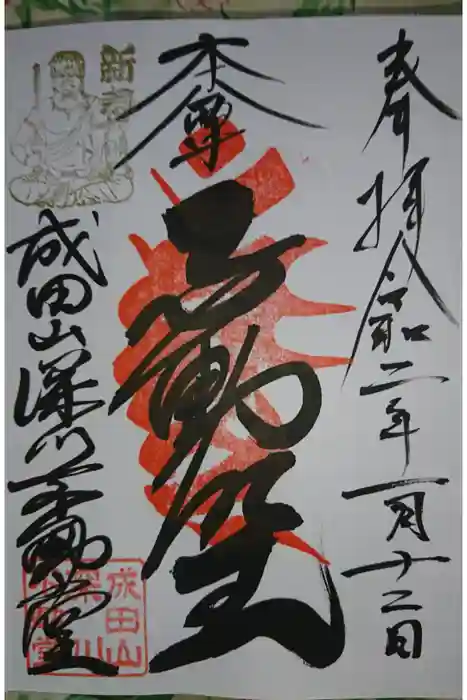 奉拝 令和二年一月十二日
本尊
不動明王
新春
成田山深川不動堂
成田山
深川
不動堂